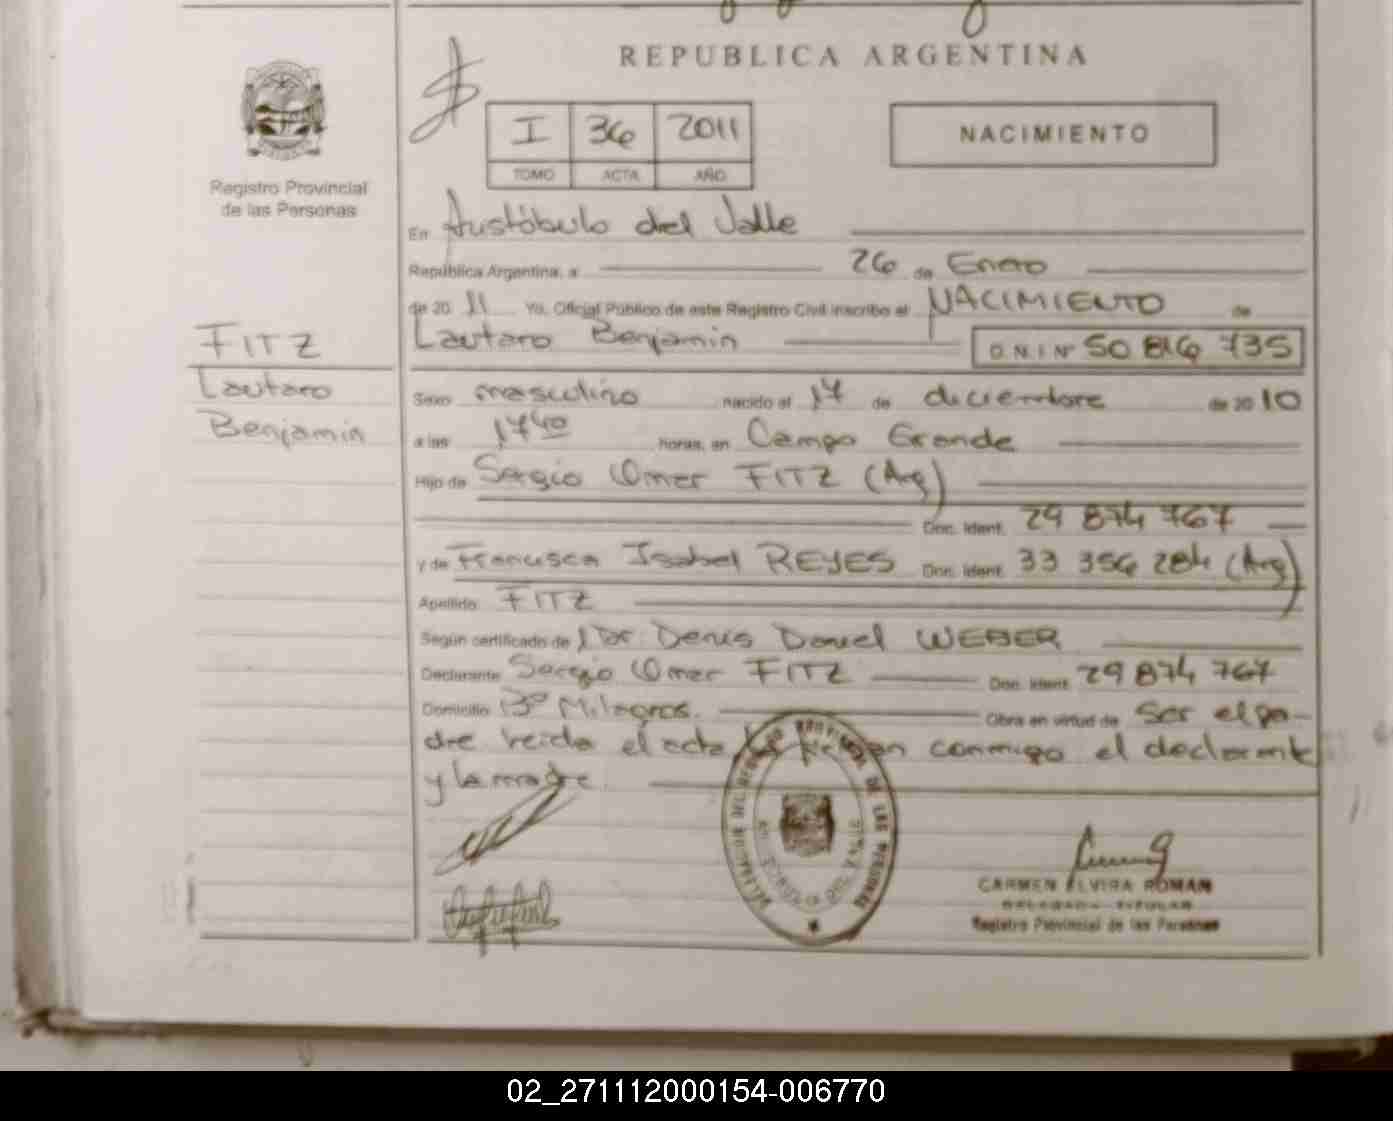 REPUBLICA ARGENTINA
I 36 2011
TOMO ACTA AÑO
NACIMIENTO
Registro Provincial
de las Personas
En Aristóbulo del Valle
República Argentina, a 26 de Enero
de 20 11 Yo, Oficial Público de este Registro Civil inscribo el NACIMIENTO de
Lautaro Benjamin D.N.I Nº 50 816 735
FITZ
Lautaro
Benjamin
Sexo masculino nacido el 17 de diciembre de 20 10
a las 17 40 horas, en Campo Grande
Hijo de Sergio Omar FITZ (Arg)
Doc. Ident. 29 874 767
y de Francisca Isabel REYES Doc. Ident. 33 356 284 (Arg)
Apellido FITZ
Según certificado de Dr. Denis Daniel WEBER
Declarante Sergio Omar FITZ Doc. Ident. 29 874 767
Domicilio Bº Milagros. Obra en virtud de ser el pa-
dre leida el acta la firman conmigo el declarante
y la madre
CARMEN ELVIRA ROMAN
DELEGADA TITULAR
Registro Provincial de las Personas
02_271112000154-006770